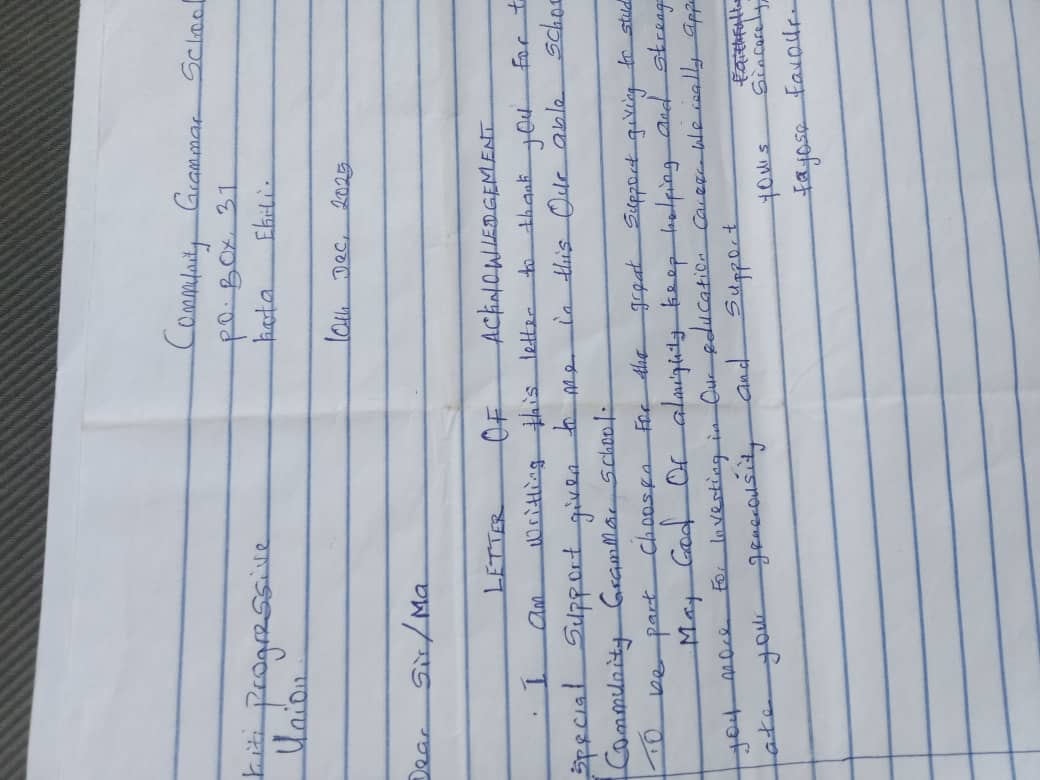 Community Grammar School
P.O. BOX. 31
kota Ekiti.
10th Dec, 2025
kiti Progressive
Union.
Dear Sir/Ma
LETTER OF ACKNOWLEDGEMENT
. I am writting this letter to thank you for t
special support given to me in this Our able schoo
Community Grammar school.
To be part choosen for the great support giving to stud
May God Of almighty keep helping and streng
you more for Investing in Our education career. We really app
ate your generousity and support
yours faithfully sincerely,
Fayose Favour.